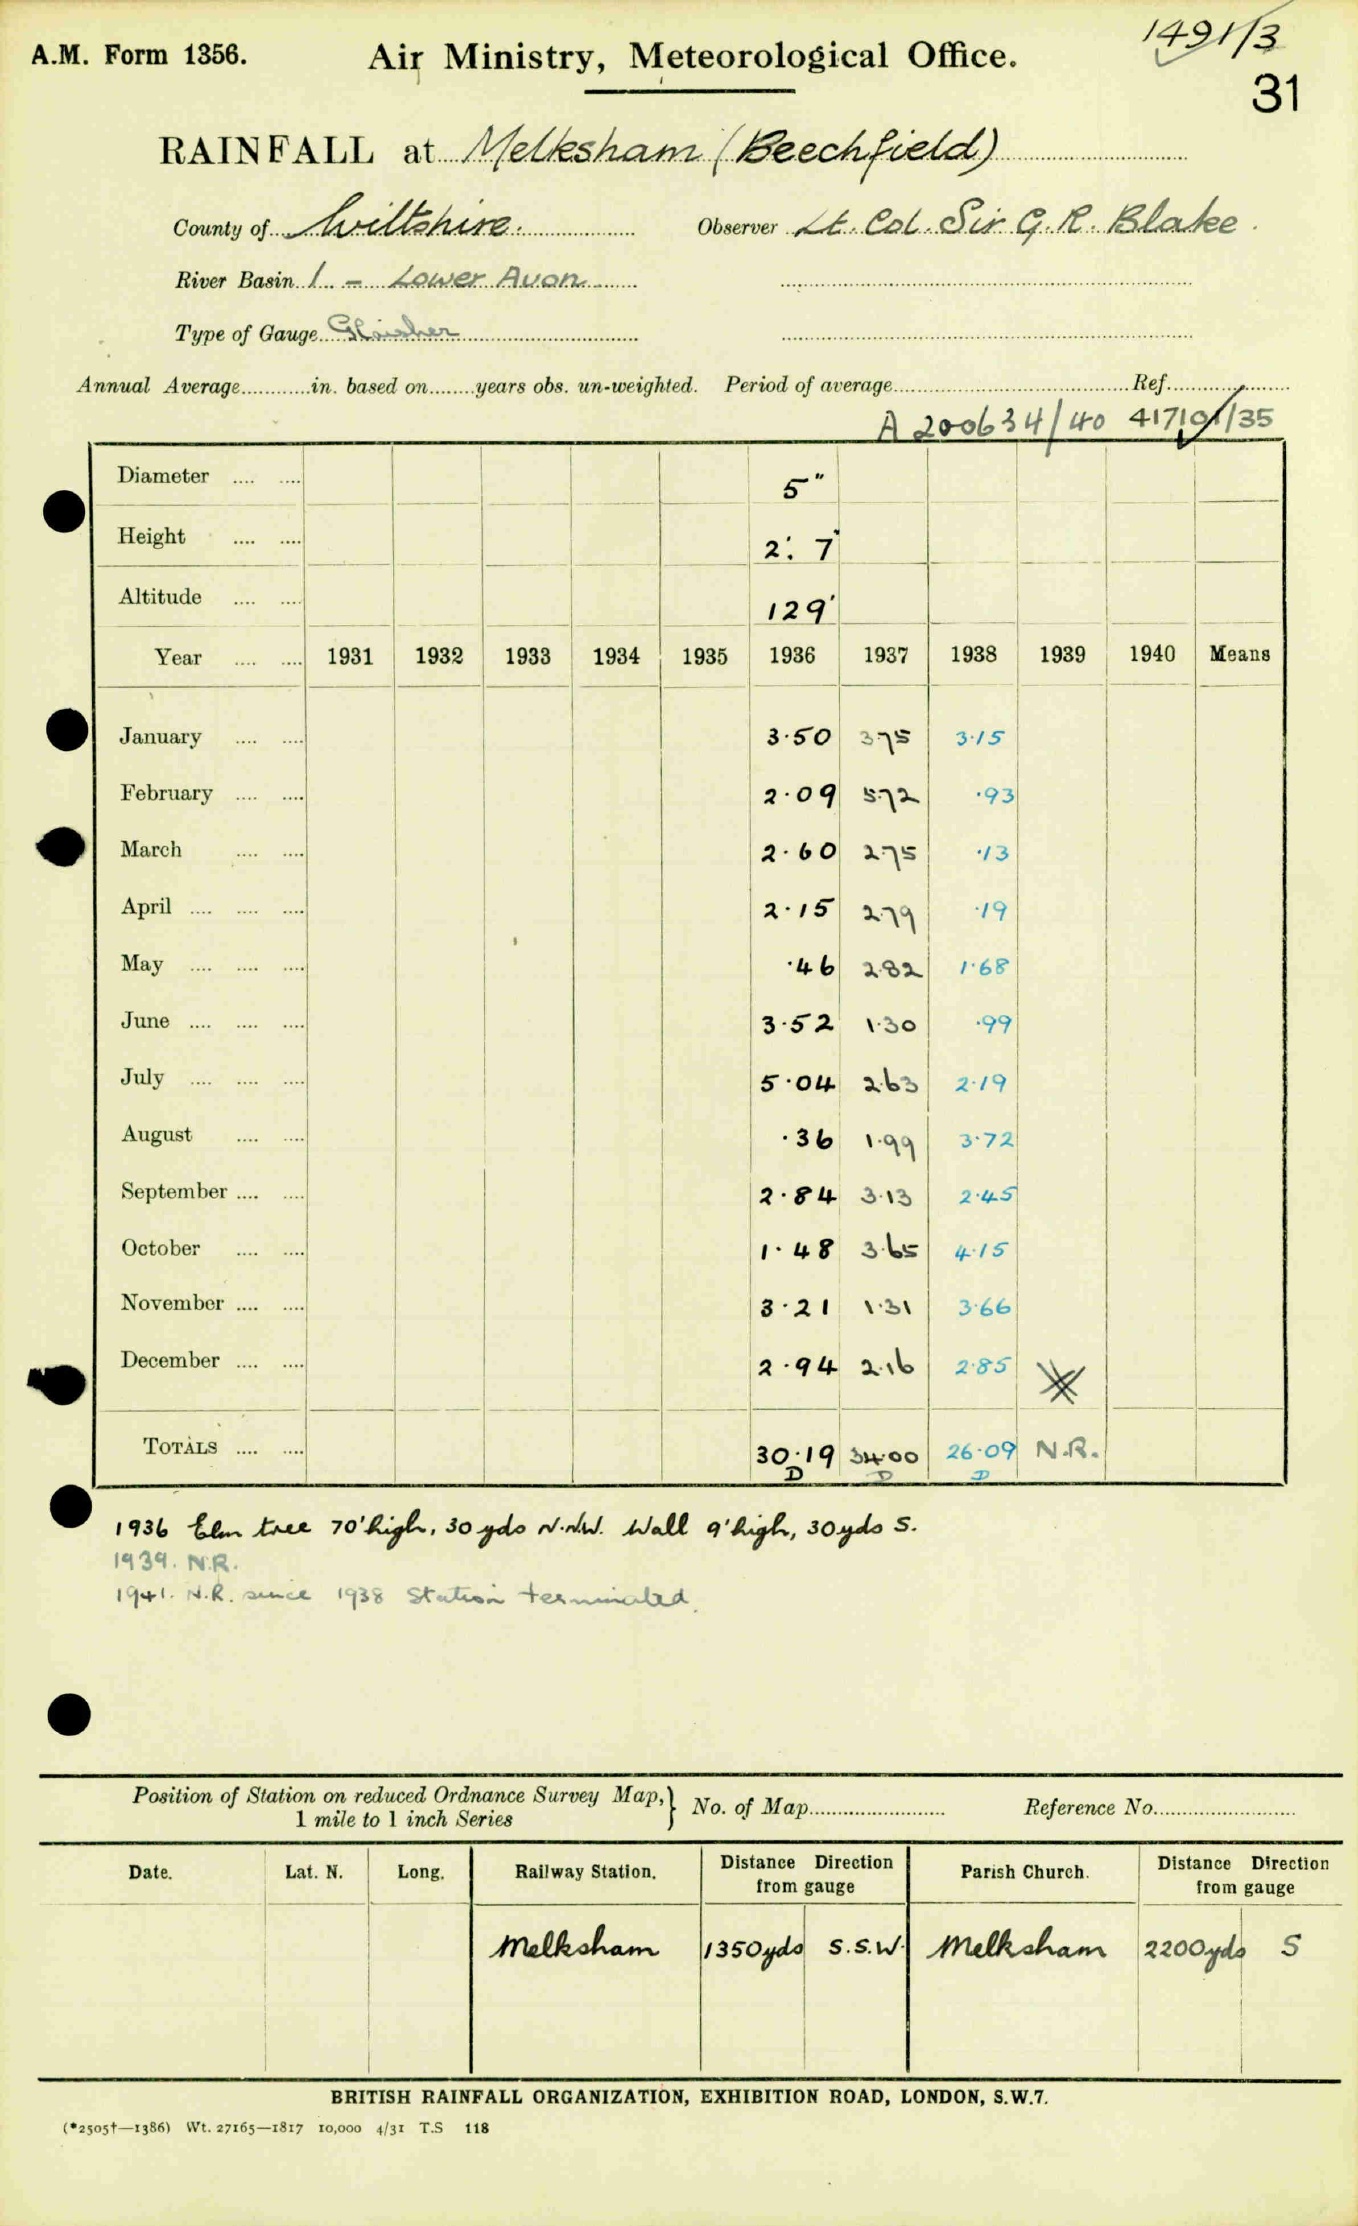 1491/3
A.M. Form 1356. Air Ministry, Meteorological Office.
31
RAINFALL at Melksham (Beechfield)
County of Wiltshire. Observer Lt. Col. Sir G. R. Blake.
River Basin 1. - Lower Avon
Type of Gauge Glaisher
Annual Average............in. based on........years obs. un-weighted. Period of average............ Ref............
A 200634/40 417101/35
Diameter .... .... 5"
Height .... .... 2'. 7"
Altitude .... .... 129'
Year .... .... 1931 1932 1933 1934 1935 1936 1937 1938 1939 1940 Means
January .... .... 3·50 375 3·15
February .... .... 2·09 5·72 ·93
March .... .... 2·60 2·75 ·13
April .... .... .... 2·15 2·79 ·19
May .... .... .... ·46 2·82 1·68
June .... .... .... 3·52 1·30 ·99
July .... .... .... 5·04 2·63 2·19
August .... .... ·36 1·99 3·72
September .... .... 2·84 3·13 2·45
October .... .... 1·48 3·65 4·15
November .... .... 3·21 1·31 3·66
December .... .... 2·94 2·16 2·85
TOTALS .... .... 30·19 34·00 26·09 N.R.
D D D
1936 Elm tree 70' high, 30 yds N.N.W. Wall 9' high, 30 yds S.
1939. N.R.
1941. N.R. since 1938 Station terminated.
Position of Station on reduced Ordnance Survey Map, } No. of Map............ Reference No............
1 mile to 1 inch Series
Date. Lat. N. Long. Railway Station. Distance Direction from gauge Parish Church. Distance Direction from gauge
Melksham 1350 yds S.S.W. Melksham 2200 yds S
BRITISH RAINFALL ORGANIZATION, EXHIBITION ROAD, LONDON, S.W.7.
(*2505†—1386) Wt. 27165—1817 10,000 4/31 T.S 118